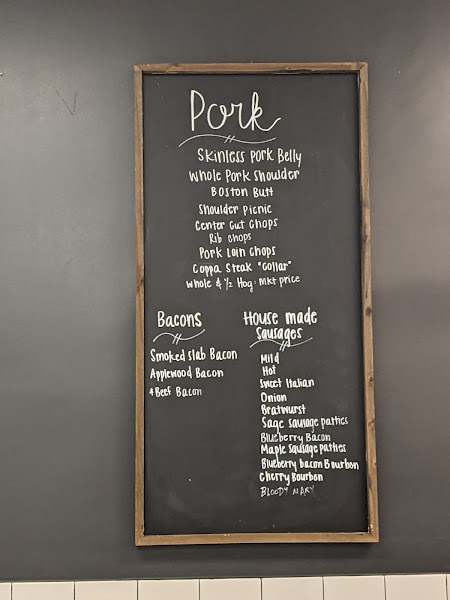 Pork
Skinless Pork Belly
Whole Pork Shoulder
Boston Butt
Shoulder Picnic
Center Cut Chops
Rib Chops
Pork Loin Chops
Coppa Steak "Collar"
Whole & 1/2 Hog: Mkt price
Bacons
Smoked Slab Bacon
Applewood Bacon
& Beef Bacon
House made
Sausages
Mild
Hot
Sweet Italian
Onion
Bratwurst
Sage sausage patties
Blueberry Bacon
Maple Sausage patties
Blueberry bacon Bourbon
Cherry Bourbon
BLOODY MARY